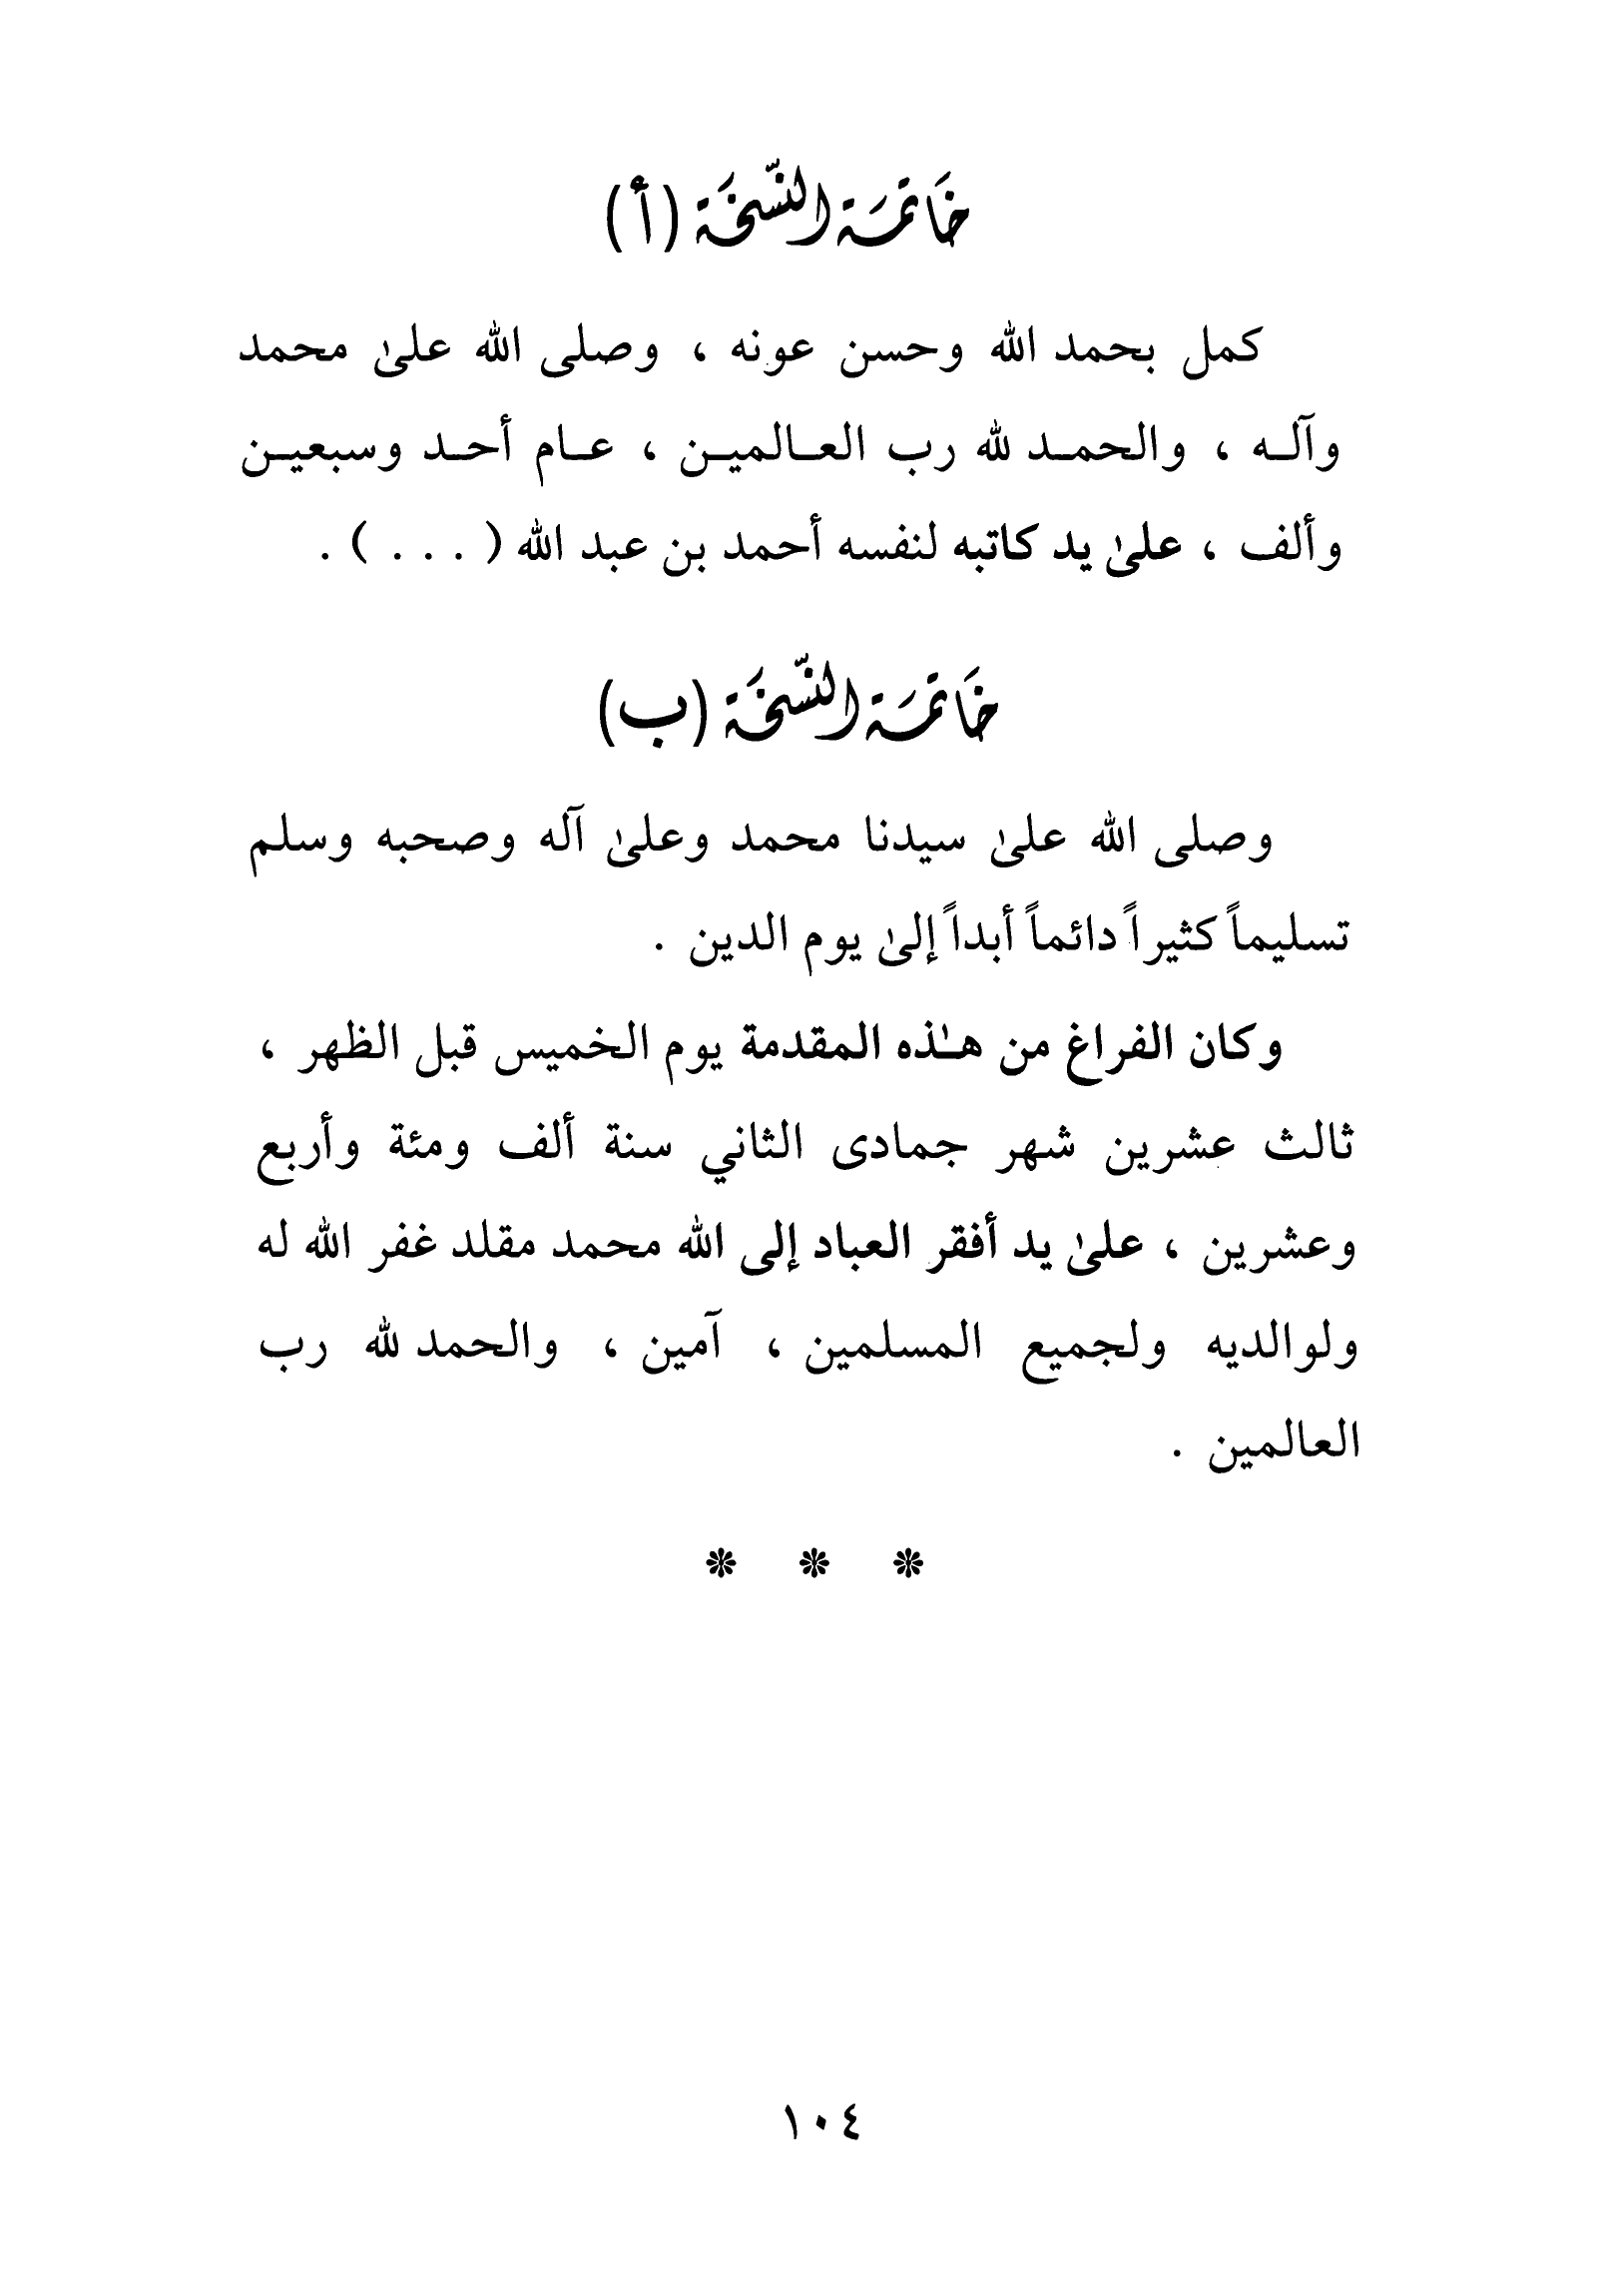 خَاتِمَة النّسْخَة (أ)
كمل بحمد الله وحسن عونه ، وصلى الله علىٰ محمد
وآلـه ، والحمـد لله رب العـالميـن ، عـام أحـد وسبعيـن
وألف ، علىٰ يد كاتبه لنفسه أحمد بن عبد الله ( . . . ) .
خَاتِمَة النّسْخَة (ب)
وصلى الله علىٰ سيدنا محمد وعلىٰ آله وصحبه وسلم
تسليماً كثيراً دائماً أبداً إلىٰ يوم الدين .
وكان الفراغ من هـٰذه المقدمة يوم الخميس قبل الظهر ،
ثالث عشرين شهر جمادى الثاني سنة ألف ومئة وأربع
وعشرين ، علىٰ يد أفقر العباد إلى الله محمد مقلد غفر الله له
ولوالديه ولجميع المسلمين ، آمين ، والحمد لله رب
العالمين .
* * *
١٠٤